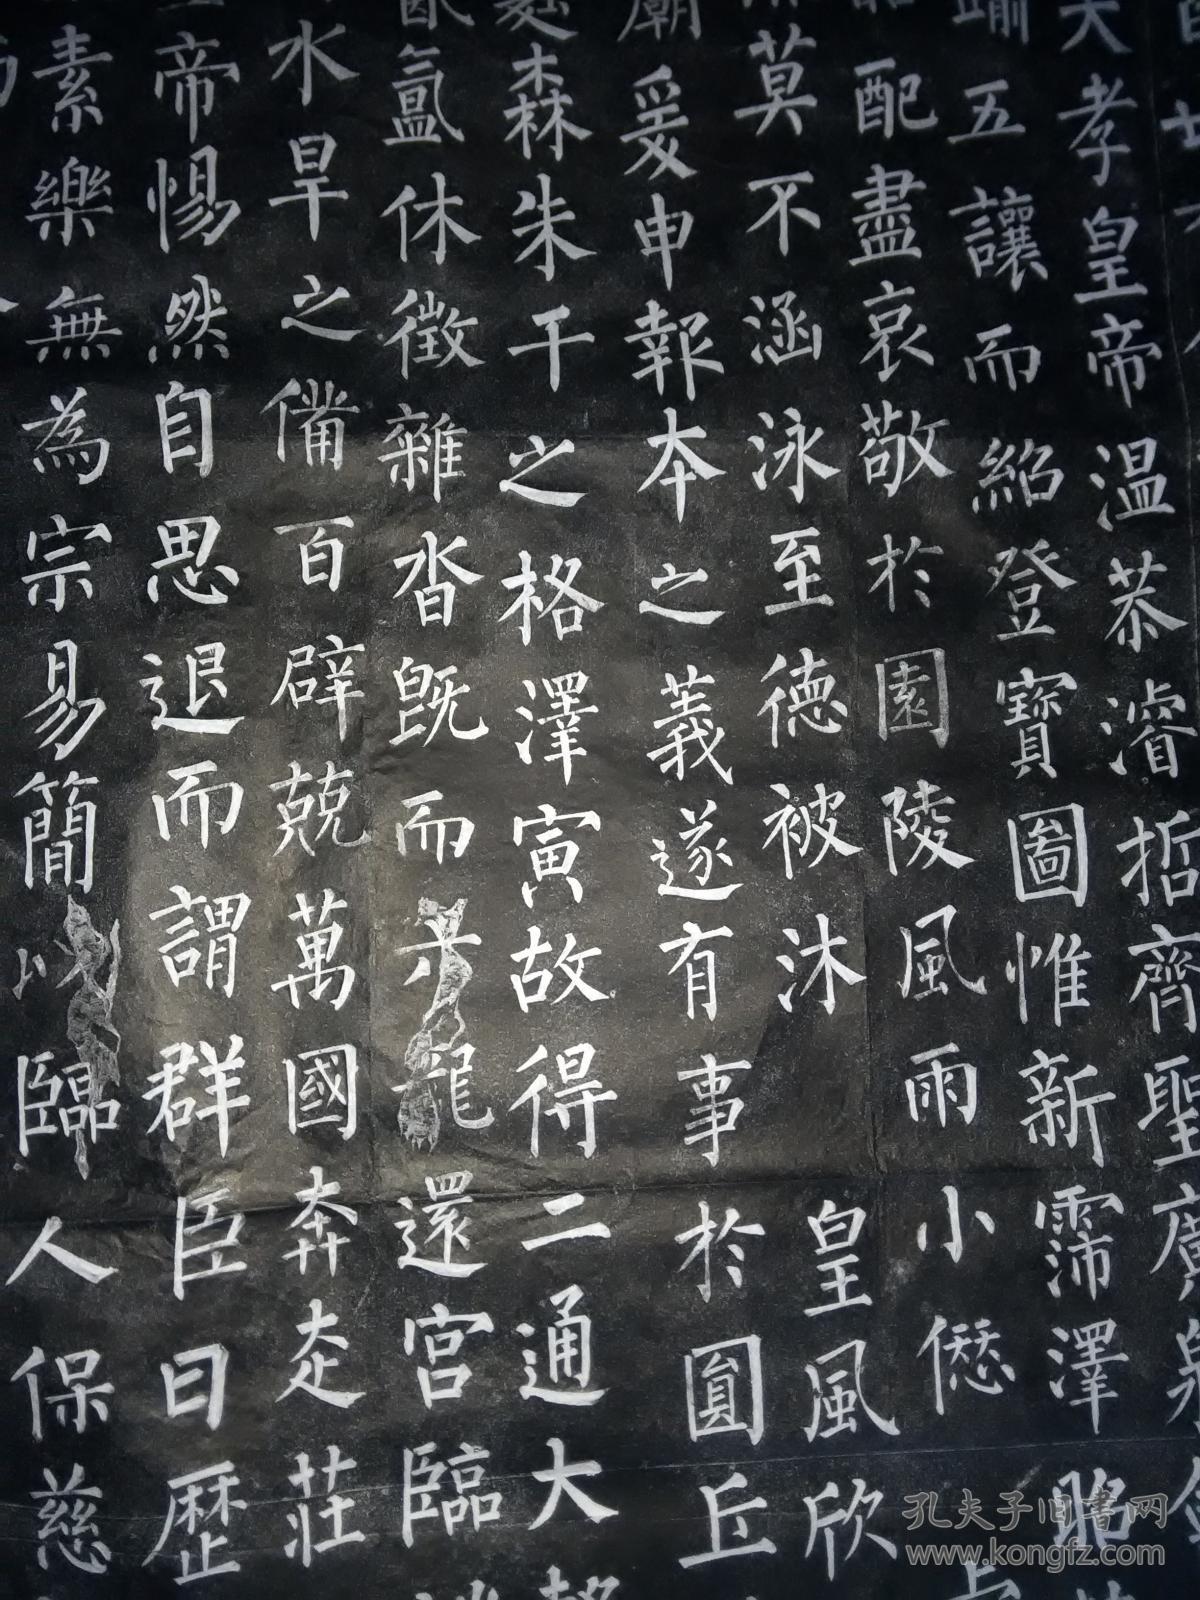 夫孝皇帝温恭濬哲齊聖廣
五讓而紹登寶圖惟新霈澤
配盡哀敬於園陵風雨小僽
莫不涵泳至德被沐 皇風欣
廟爰申報本之義遂有事於圓丘
森朱干之格澤寅故得二通大
氳休徵雜沓既而六龍還宮臨
水旱之備百辟兢萬國奔走莊
帝惕然自思退而謂群臣曰歷
素樂無為宗易簡以臨人保慈
孔夫子旧书网
www.kongfz.com